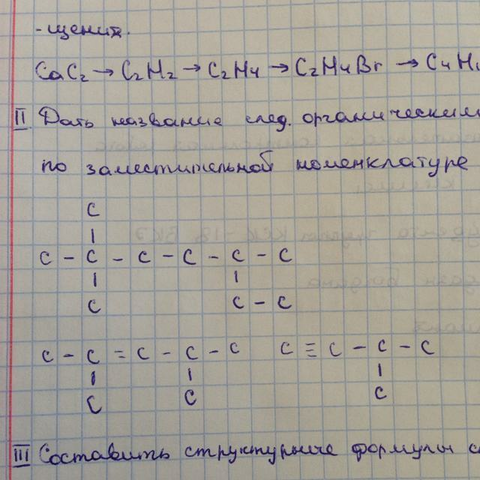 -щения.
CaC2 → C2H2 → C2H4 → C2H4Br → C4H
II Дать название след. органическим
по заместительной номенклатуре
C
C - C - C - C - C - C
C C - C
C - C = C - C - C C ≡ C - C - C
C C C
III Составить структурные формулы с